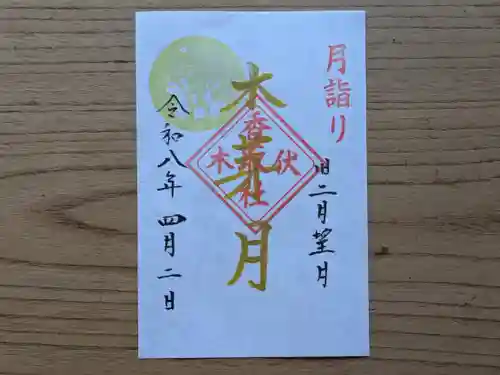 月詣り
旧二月望月
木
月
香取
木伏
社
令和八年 四月二日